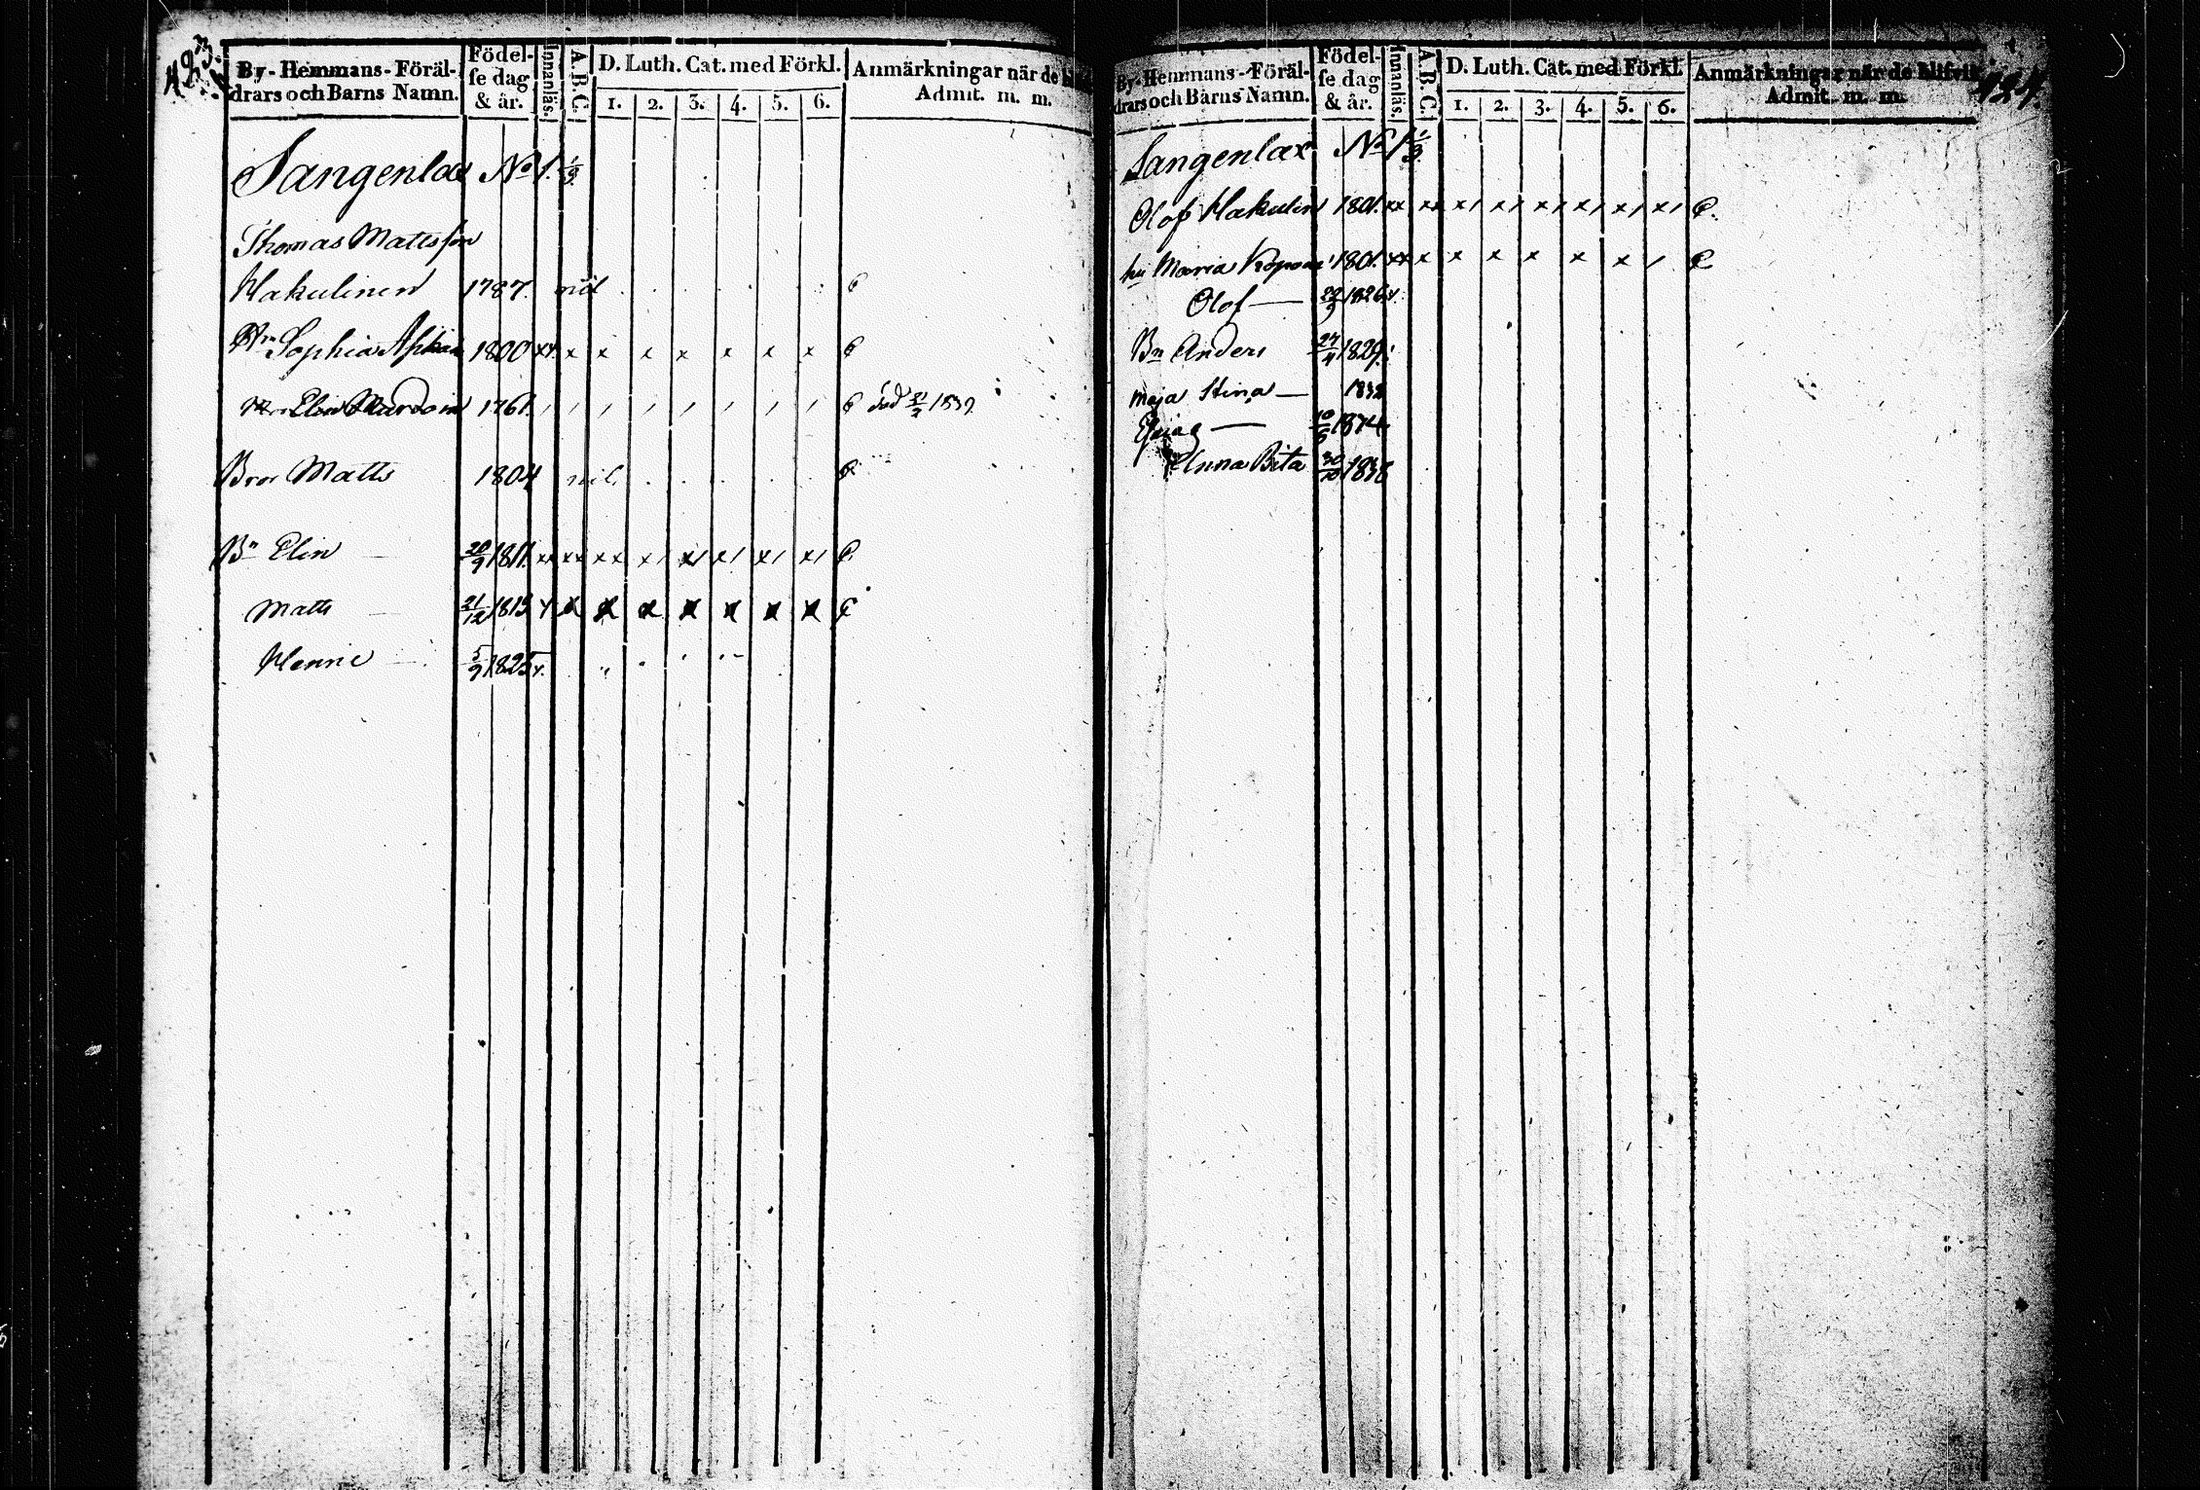 423.
By-Hemmans-Föräl-
drars och Barns Namn.
Födel-
se dag
& år.
Innanläs.
A.B.C.
D. Luth. Cat. med Förkl.
1. 2. 3. 4. 5. 6.
Anmärkningar när de
Admit. m. m.
Sangenlax No 1. 1/3.
Thomas Mattsson
Hakulinen 1787. nil
Sophia 1800 xx x x x x x x x
1761. död 1837
Bror Matts 1804 nil.
Bn Elin 20/9 1811. xx xx xx x/ x/ x/ x/ x/
Matts 21/12 1813
5/9 1825
424.
By-Hemmans-Föräl-
drars och Barns Namn.
Födel-
se dag
& år.
Innanläs.
A.B.C.
D. Luth. Cat. med Förkl.
1. 2. 3. 4. 5. 6.
Anmärkningar när de blifvit
Admit. m. m.
Sangenlax No 1 1/3.
Olof Hakulin 1801. xx xx x/ x/ x/ x/ x/ x/
hu Maria 1801. xx x x x x x x /
Olof — 1826
Bn Anders 1829.
Maja Stina —
Anna Brita 30/10 1836